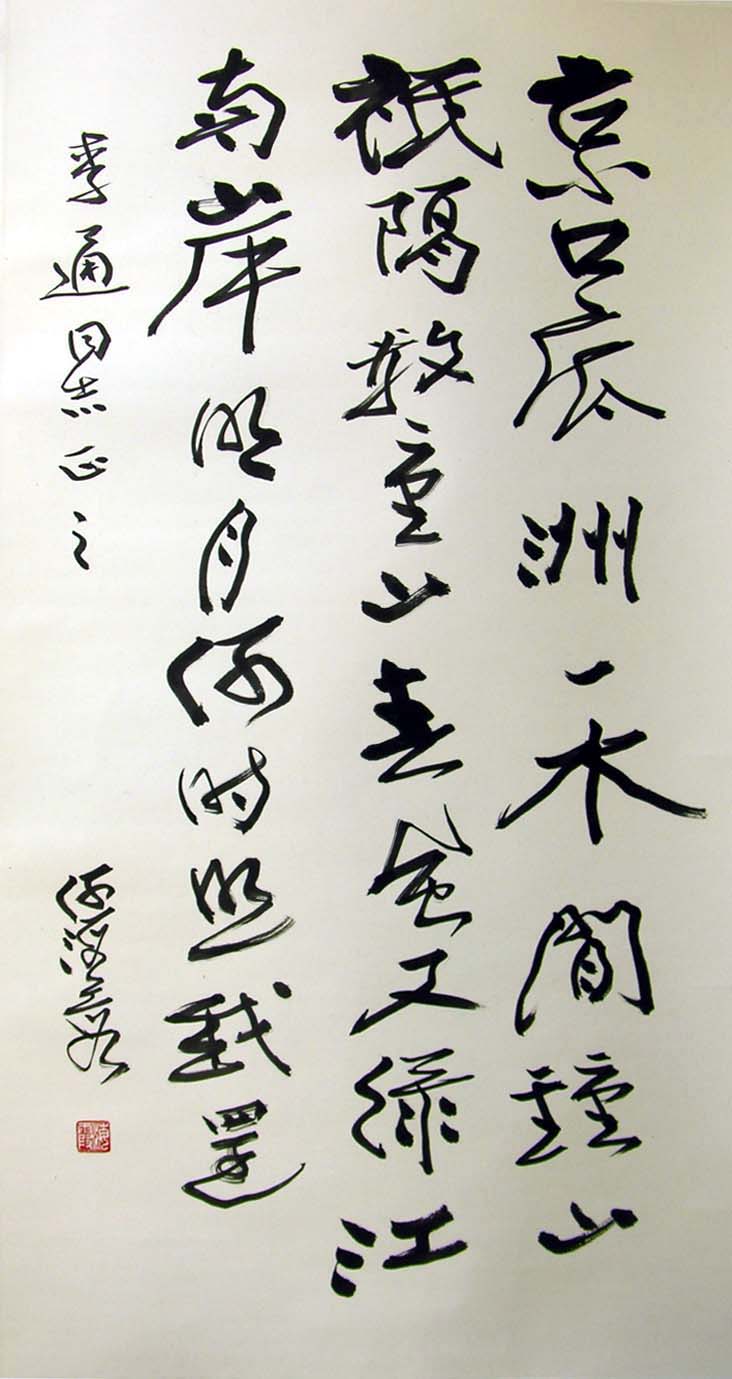 京口瓜洲一水間鍾山
祇隔数重山春風又綠江
南岸明月何时照我還
李通同志正之
何海霞
海霞